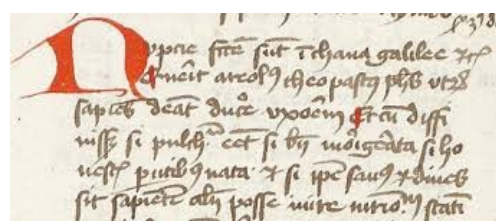 Nupcie fcē sūt ī chana galilee ⁊c̄
Querit areolꝰ theopastꝰ ph̄s vtꝝ
sapiēs deāt duce᷑ vxoēm Et cū diffi
niss; si pulchͣ eēt si bn̄ moīgeāta si ho
nestꝭ pntibꝰ nata ⁊ si ipē sanꝰ ⁊ diues
sit sapiētē alīn̄ posse inire mt̄rioᷤm stati